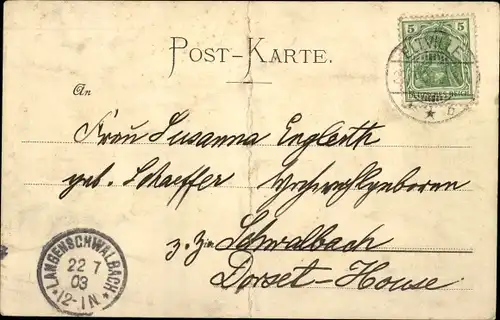 POST-KARTE.
5 5
ELTVILLE
DEUTSCHES REICH
* b
An
Frau Susanna Englerth
geb. Schaeffer Hochwohlgeboren
z. Z. Schwalbach
Dorset-House
LANGENSCHWALBACH
22 7
03
* 12-1N *